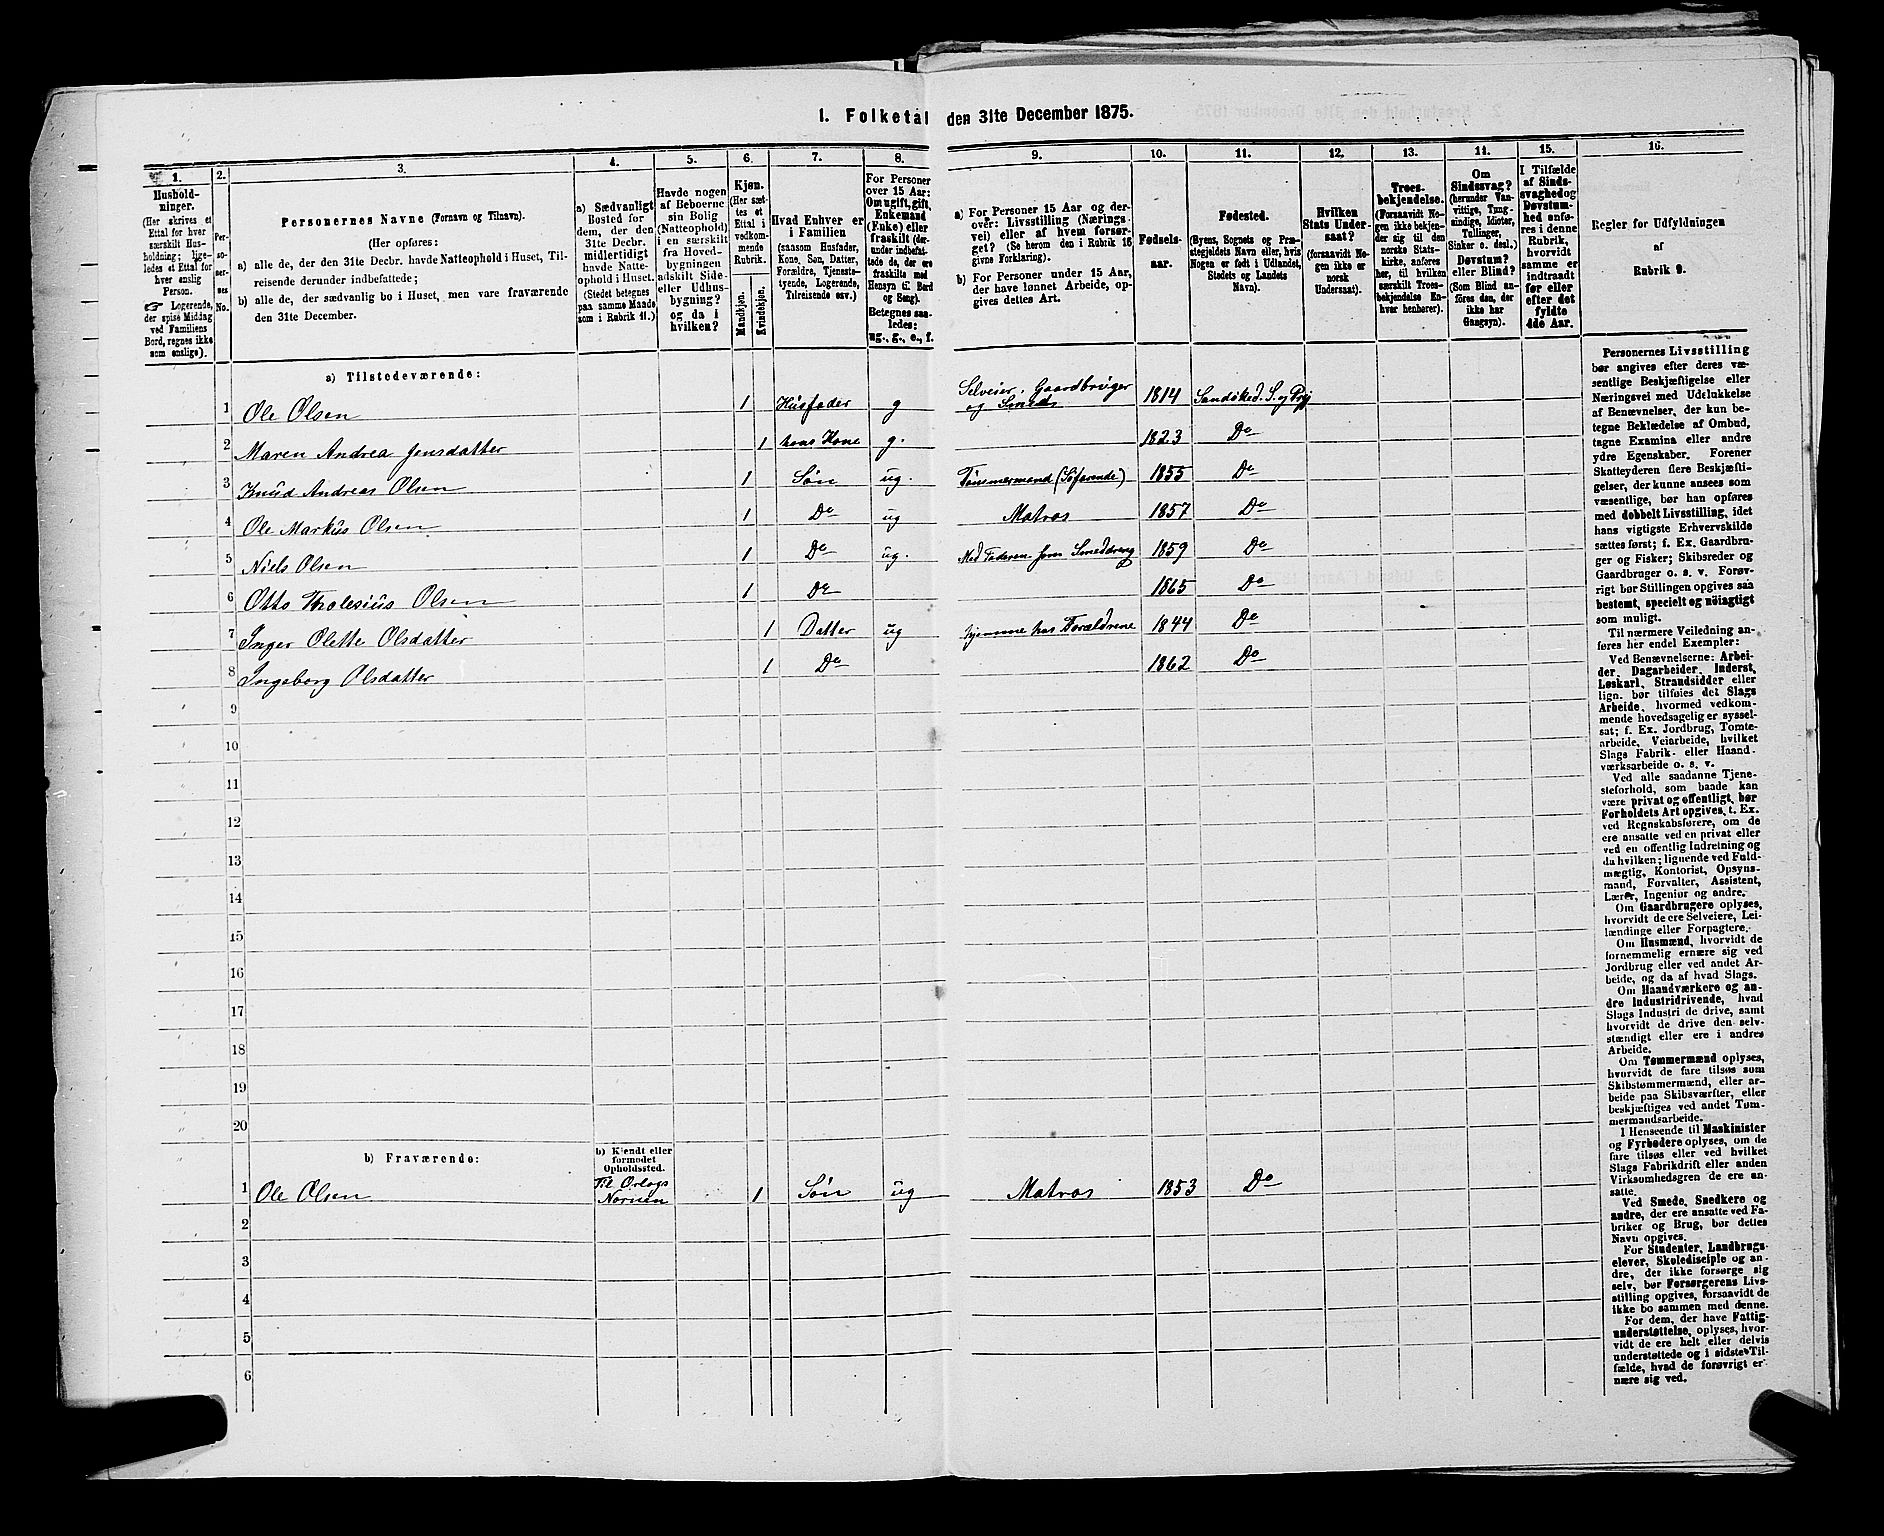 1. Folketal den 31te December 1875.
1. 2. 3. 4. 5. 6. 7. 8. 9. 10. 11. 12. 13. 14. 15. 16.
Hushold-
ninger.
(Her skrives et
Ettal for hver
særskilt Hus-
holdning; lige-
ledes et Ettal for
hver enslig
Person.
Logerende,
der spise Middag
ved Familiens
Bord, regnes ikke
som enslige).
Per-
so-
ner-
nes
No.
Personernes Navne (Fornavn og Tilnavn).
(Her opføres:
a) alle de, der den 31te Decbr. havde Natteophold i Huset, Til-
reisende derunder indbefattede;
b) alle de, der sædvanlig bo i Huset, men vare fraværende
den 31te December.
a) Sædvanligt
Bosted for
dem, der den
31te Decbr.
midlertidigt
havde Natte-
ophold i Huset.
(Stedet betegnes
paa samme Maade
som i Rubrik 11.)
Havde nogen
af Beboerne
sin Bolig
(Natteophold)
i en særskilt
fra Hoved-
bygningen
adskilt Side-
eller Udhus-
bygning?
og da i
hvilken?
Kjøn.
(Her sæt-
tes et
Ettal i
vedkom-
mende
Rubrik.
Mandkjøn.
Kvindekjøn.
Hvad Enhver er
i Familien
(saasom Husfader,
Kone, Søn, Datter,
Forældre, Tjeneste-
tyende, Logerende,
Tilreisende osv.)
For Personer
over 15 Aar:
Om ugift, gift,
Enkemand
(Enke) eller
fraskilt (der-
under indbefat-
tede de, der ere
fraskilte med
Hensyn til Bord
og Seng).
Betegnes saa-
ledes:
ug., g., e., f.
a) For Personer 15 Aar og der-
over: Livsstilling (Nærings-
vei) eller af hvem forsør-
get? (Se herom den i Rubrik 16
givne Forklaring).
b) For Personer under 15 Aar,
der have lønnet Arbeide, op-
gives dettes Art.
Fødsels-
aar.
Fødested.
(Byens, Sognets og Præ-
stegjeldets Navn eller, hvis
Nogen er født i Udlandet,
Stedets og Landets
Navn).
Hvilken
Stats Under-
saat?
(forsaavidt No-
gen ikke er
norsk
Undersaat).
Troes-
bekjendelse.
(Forsaavidt No-
gen ikke bekjen-
der sig til den
norske Stats-
kirke, anføres
her, til hvilken
særskilt Troes-
bekjendelse En-
hver henhører).
Om
Sindssvag?
(herunder Van-
vittige, Tung-
sindige, Idioter,
Tullinger,
Sinker o. desl.)
Døvstum?
eller Blind?
(Som Blind an-
føres den, der
ikke har
Gangsyn).
I Tilfælde
af Sinds-
svaghed og
Døvstum-
hed anfø-
res i denne
Rubrik,
hvorvidt
samme er
indtraadt
før eller
efter det
fyldte
4de Aar.
Regler for Udfyldningen
af
Rubrik 9.
a) Tilstedeværende:
1 Ole Olsen 1 Husfader g Selveier. Gaardbruger og Smed 1814 Sandøked. S. og Prgj
2 Maren Andrea Jensdatter 1 hans Kone g. 1823 Do
3 Knud Andreas Olsen 1 Søn ug. Tømmermand (Søfarende) 1855 Do
4 Ole Markus Olsen 1 Do ug Matros 1857 Do
5 Niels Olsen 1 Do ug. Med Faderen som Smeddreng 1859 Do
6 Otto Tholesius Olsen 1 Do 1865 Do
7 Inger Olette Olsdatter 1 Datter ug hjemme hos Forældrene 1844 Do
8 Ingeborg Olsdatter 1 Do 1862 Do
9
10
11
12
13
14
15
16
17
18
19
20
b) Fraværende:
b) Kjendt eller
formodet
Opholdssted.
1 Ole Olsen Til Orlogs Nornen 1 Søn ug Matros 1853 Do
2
3
4
5
6
Personernes Livsstilling
bør angives efter deres væ-
sentlige Beskjæftigelse eller
Næringsvei med Udelukkelse
af Benævnelser, der kun be-
tegne Beklædelse af Ombud,
tagne Examina eller andre
ydre Egenskaber. Forener
Skatteyderen flere Beskjæfti-
gelser, der kunne ansees som
væsentlige, bør han opføres
med dobbelt Livsstilling, idet
hans vigtigste Erhvervskilde
sættes først; f. Ex. Gaardbru-
ger og Fisker; Skibsreder og
Gaardbruger o. s. v. Forøv-
rigt bør Stillingen opgives saa
bestemt, specielt og nøiagtigt
som muligt.
Til nærmere Veiledning an-
føres her endel Exempler:
Ved Benævnelserne: Arbei-
der, Dagarbeider, Inderst,
Løskarl, Strandsidder eller
lign. bør tilføies det Slags
Arbeide, hvormed vedkom-
mende hovedsagelig er syssel-
sat; f. Ex. Jordbrug, Tomte-
arbeide, Veiarbeide, hvilket
Slags Fabrik- eller Haand-
værksarbeide o. s. v.
Ved alle saadanne Tjene-
steforhold, som baade kan
være privat og offentligt, bør
Forholdets Art opgives, t. Ex.
ved Regnskabsførere, om de
ere ansatte ved en privat eller
ved en offentlig Indretning og
da hvilken; lignende ved Fuld-
mægtig, Kontorist, Opsyns-
mand, Forvalter, Assistent,
Lærer, Ingeniør og andre.
Om Gaardbrugere oplyses,
hvorvidt de ere Selveiere, Lei-
lændinge eller Forpagtere.
Om Husmænd, hvorvidt de
fornemmelig ernære sig ved
Jordbrug eller ved andet Ar-
beide, og da af hvad Slags.
Om Haandværkere og an-
dre Industridrivende, hvad
Slags Industri de drive, samt
hvorvidt de drive den selv-
stændigt eller ere i andres
Arbeide.
Om Tømmermænd oplyses,
hvorvidt de fare tilsøs som
Skibstømmermænd, eller ar-
beide paa Skibsværfter, eller
beskjæftiges ved andet Tøm-
mermandsarbeide.
I Henseende til Maskinister
og Fyrbødere oplyses, om de
fare tilsøs eller ved hvilket
Slags Fabrikdrift eller anden
Virksomhedsgren de ere an-
satte.
Ved Smede, Snedkere og
andre, der ere ansatte ved Fa-
briker og Brug, bør dettes
Navn opgives.
For Studenter, Landbrugs-
elever, Skoledisciple og an-
dre, der ikke forsørge sig
selv, bør Forsørgerens Livs-
stilling opgives, forsaavidt de
ikke bo sammen med denne.
For dem, der have Fattig-
understøttelse, oplyses, hvor-
vidt de ere helt eller delvis
understøttede og i sidste Til-
fælde, hvad de forøvrigt er-
nære sig ved.